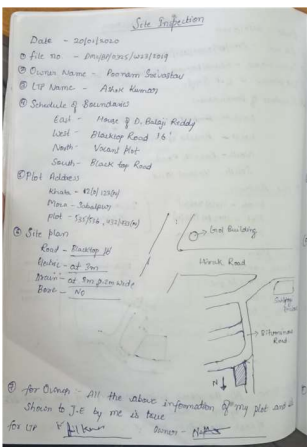 Site Inspection
Date - 20/01/2020
① File no - BMV/BP/0325/W23/2019
② Owner Name - Poonam Srivastav
③ LTP Name - Ashok Kumar
④ Schedule of Boundaries
East - House of D. Balaji Reddy
West - Blacktop Road 16'
North - Vacant Plot
South - Black top Road
⑤ Plot Address
Khata -
Mouza -
Plot -
⑥ Site plan
Road -
Electric - at 3m
Drain - at 3m, 0.6m wide
Bore - No
Building
Road
Bituminous
Road
N
⑦ for Owner - All the above information of my plot and
Shown to J.E by me is true
for LTP
Owner -